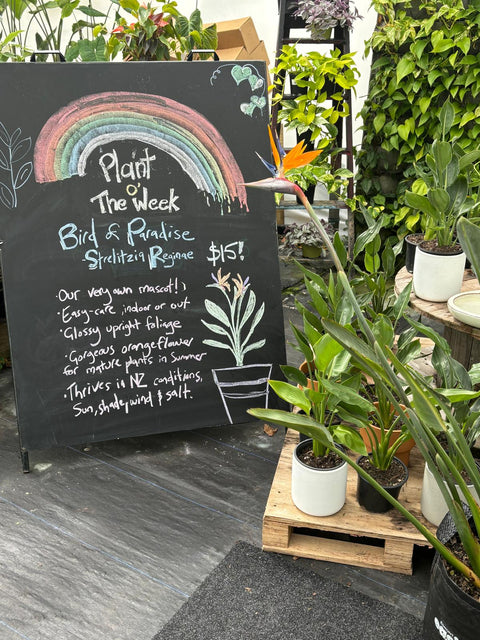 Plant
o'
The Week
Bird of Paradise
Strelitzia Reginae
$15!
·Our very own mascot!)
·Easy-care, indoor or out
·Glossy upright foliage
·Gorgeous orange flower
for mature plants in Summer
·Thrives in NZ conditions,
Sun, shade, wind & salt.